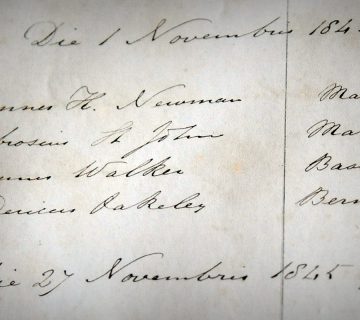 Die 1 Novembris 184
nnes H. Newman Ma
brosius St John Ma
nnes Walker Bas
dericus Oakeley Bern
Die 27 Novembris 1845